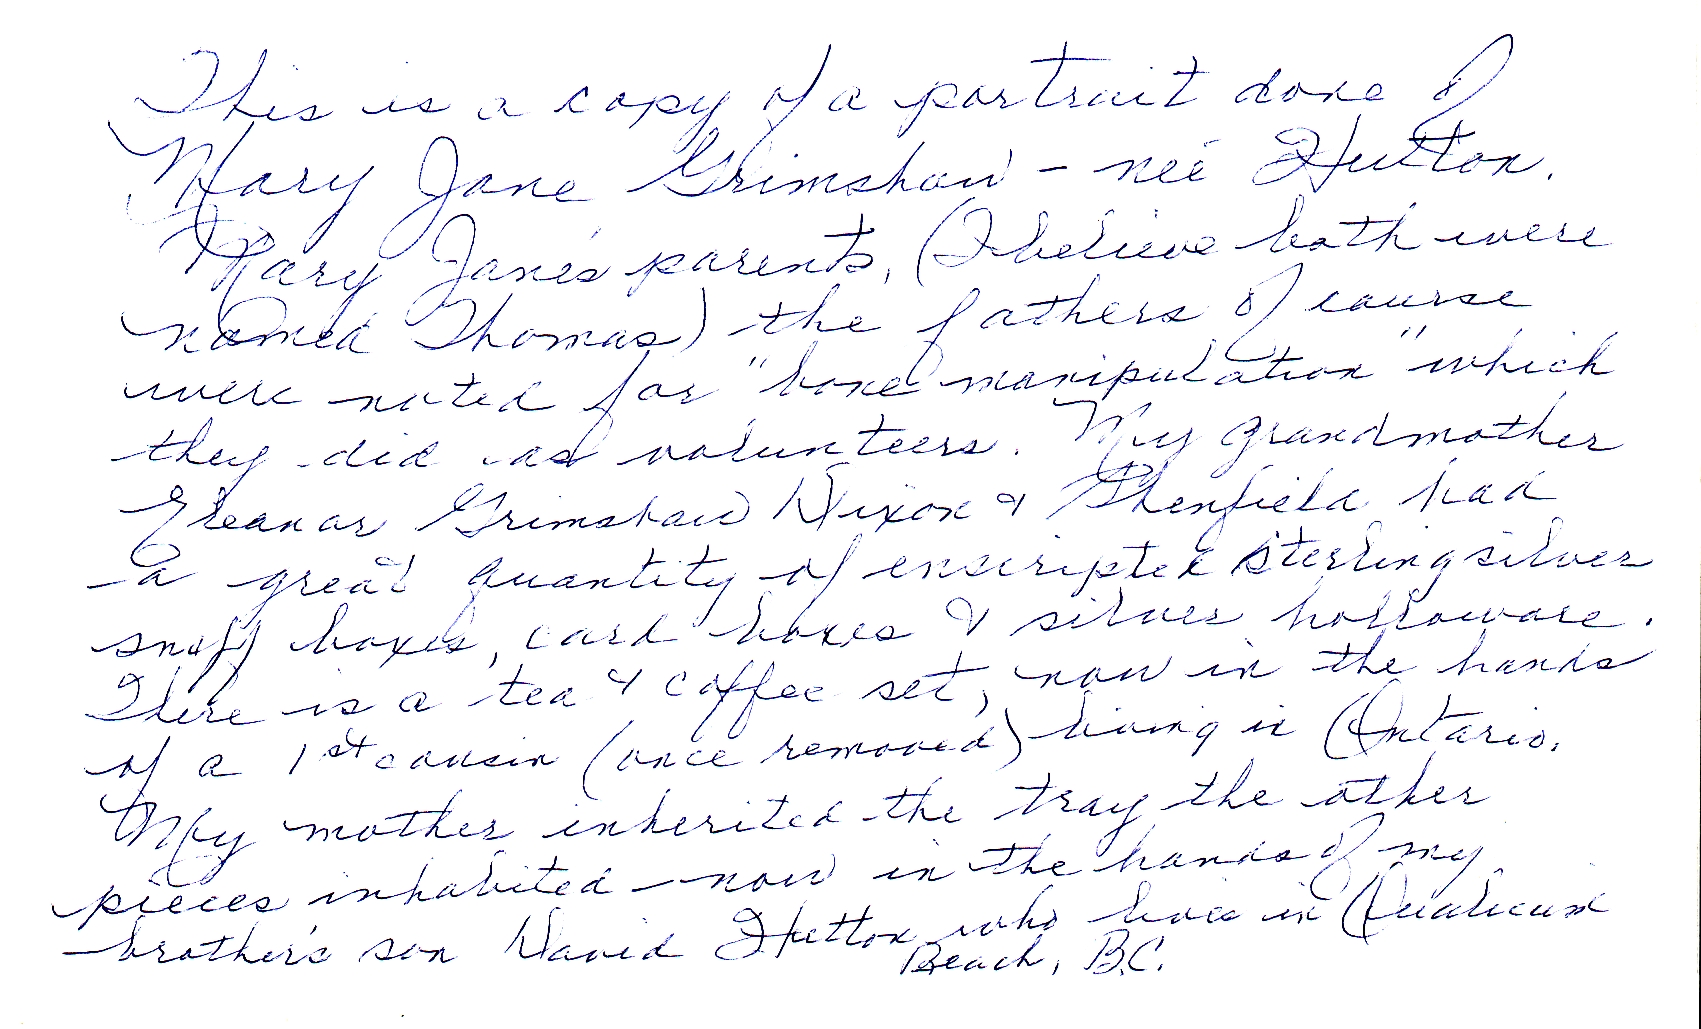 This is a copy of a portrait done of
Mary Jane Grimshaw - neé Hutton.
Mary Jane's parents, (I believe both were
named Thomas) the fathers of course
were noted for "bone manipulation" which
they did as volunteers. My grandmother
Eleanor Grimshaw Dixon & Shenfield had
a great quantity of enscripted sterling silver
snuff boxes, card boxes & silver holloware.
There is a tea & coffee set, now in the hands
of a 1st cousin (once removed) living in Ontario.
My mother inherited the tray the other
pieces inhabited - now in the hands of my
brother's son David Hutton who lives in Qualicum
Beach, B.C.